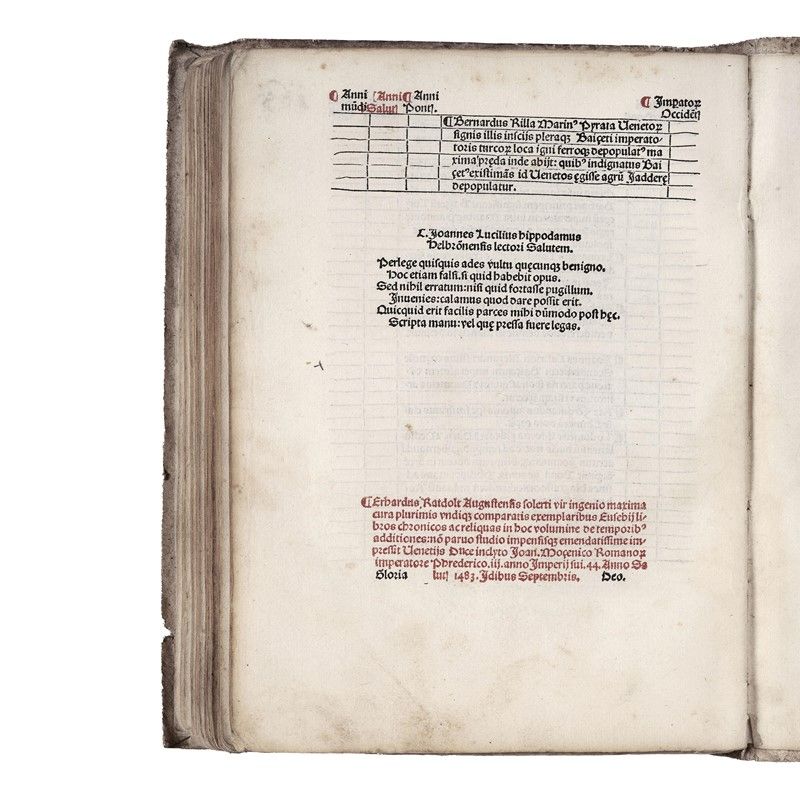 ¶ Anni [Anni ¶ Anni ¶ Imꝑatoꝝ
mūdi Salutꝭ Pontꝭ. Occidētꝭ
¶ Bernardus Rilla Marinꝰ Pyrata Uenetoꝝ
signis illis inscijs pleraqꝫ Baiçeti imperato-
toris turcoꝝ loca igni ferroqꝫ depopulatꝰ ma
xima pręda inde abijt: quibꝰ indignatus Bai
çetꝰ existimās id Uenetos ęgisse agrū Jadderę
depopulatur.
C. Joannes Lucilius hippodamus
Helbrōnensis lectori Salutem.
Perlege quisquis ades vultu quęcunqꝫ benigno.
Hoc etiam falsi. si quid habebit opus.
Sed nihil erratum: nisi quid fortasse pugillum.
Inuenies: calamus quod dare possit erit.
Quicquid erit facilis parces mihi dūmodo post hęc.
Scripta manu: vel quę pressa fuere legas.
¶ Erhardus Ratdolt Augustensis solerti vir ingenio maxima
cura plurimis vndiqꝫ comparatis exemplaribus Eusebij li-
bros chronicos ac reliquas in hoc volumine de temporibꝰ
additiones: nō paruo studio impensisqꝫ emendatissime im-
pressit Uenetijs Duce inclyto Joan. Moçenico Romanoꝝ
imperatore Phrederico .iij. anno Imperij sui .44. Anno Sa
Gloria lutꝭ 1483. Idibus Septembris. Deo.